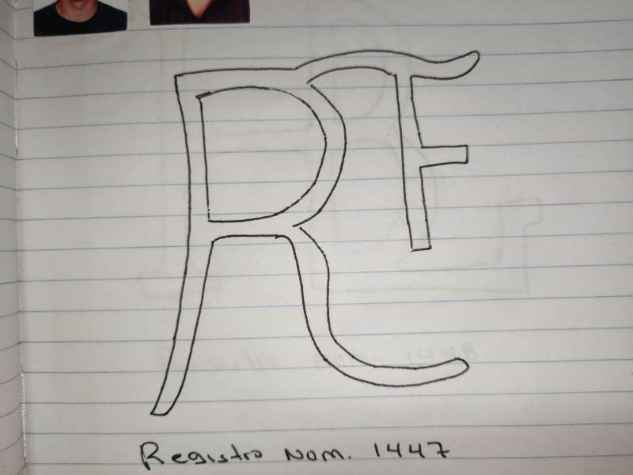 RF
Registro Nom. 1447